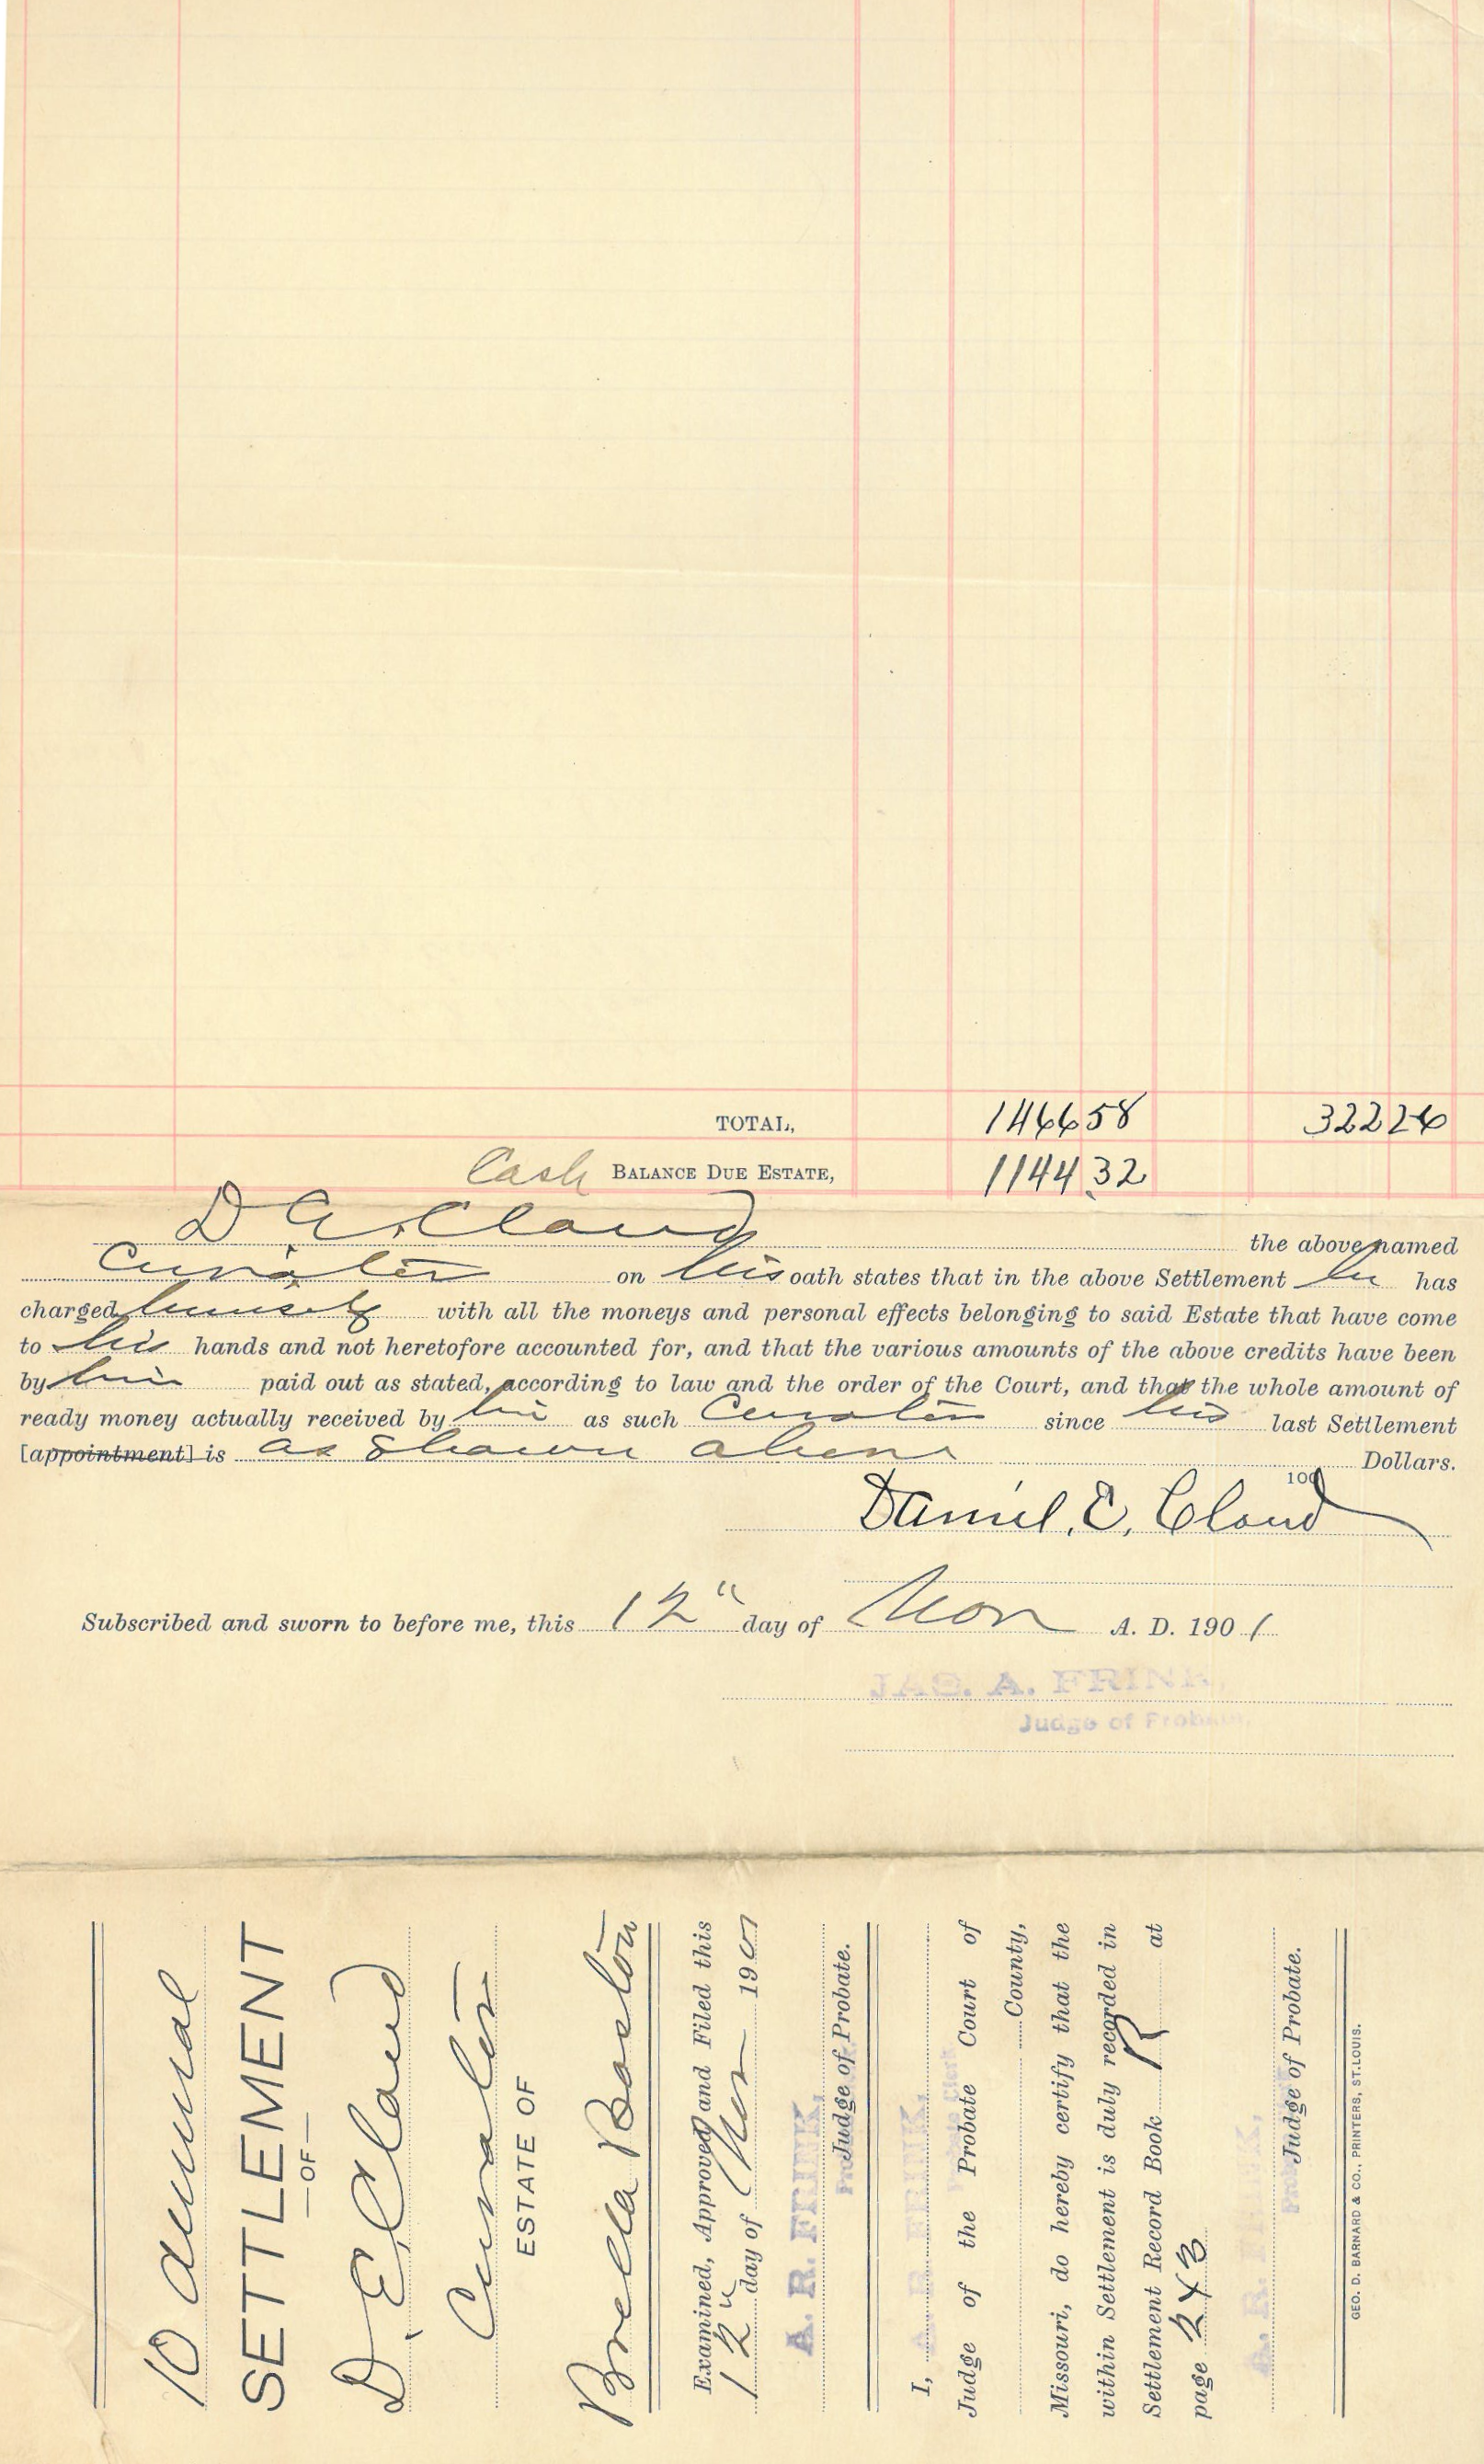 TOTAL, 1466 58 322 26
Cash BALANCE DUE ESTATE, 1144.32
D. E. Cloud the above named
Curator on his oath states that in the above Settlement he has
charged himself with all the moneys and personal effects belonging to said Estate that have come
to his hands and not heretofore accounted for, and that the various amounts of the above credits have been
by him paid out as stated, according to law and the order of the Court, and that the whole amount of
ready money actually received by him as such Curator since his last Settlement
[appointment] is as shown above Dollars.
100
Daniel. E, Cloud
Subscribed and sworn to before me, this 12" day of Nov A. D. 190 1
JAS. A. FRINK,
Judge of Probate.
10 annual
SETTLEMENT
—OF—
D. E. Cloud
Curator
ESTATE OF
Boston
Examined, Approved and Filed this
12" day of Nov 190
A. R. FRINK,
Judge of Probate.
I, A. R. FRINK,
Judge of the Probate Court of
County,
Missouri, do hereby certify that the
within Settlement is duly recorded in
Settlement Record Book R at
page 243
A. R. FRINK,
Judge of Probate.
GEO. D. BARNARD & CO., PRINTERS, ST. LOUIS.